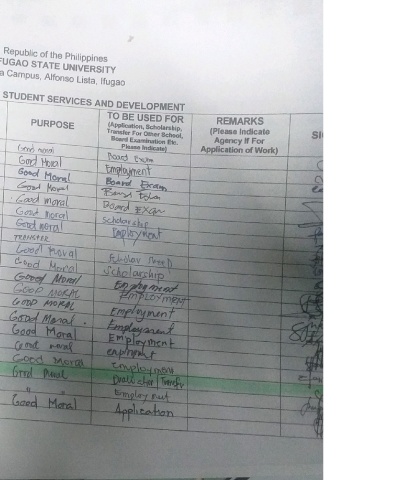 Republic of the Philippines
FUGAO STATE UNIVERSITY
a Campus, Alfonso Lista, Ifugao
STUDENT SERVICES AND DEVELOPMENT
PURPOSE
TO BE USED FOR
(Application, Scholarship,
Transfer For Other School,
Board Examination Etc.
Please Indicate)
REMARKS
(Please Indicate
Agency If For
Application of Work)
Good moral Board Exam
Good Moral Employment
Good Moral Board Exam
Good Moral Board Exam
Good moral Board Exam
Good moral Scholarship
Good moral Employment
TRANSFER
Good Moral
Good Moral Scholarship
Good Moral Employment
GOOD MORAL EMPLOYMENT
GOOD MORAL Employment
Good Moral Employment
Good Moral Employment
Good moral employment
Good Moral employment
Good Moral
" " Employment
Good Moral Application